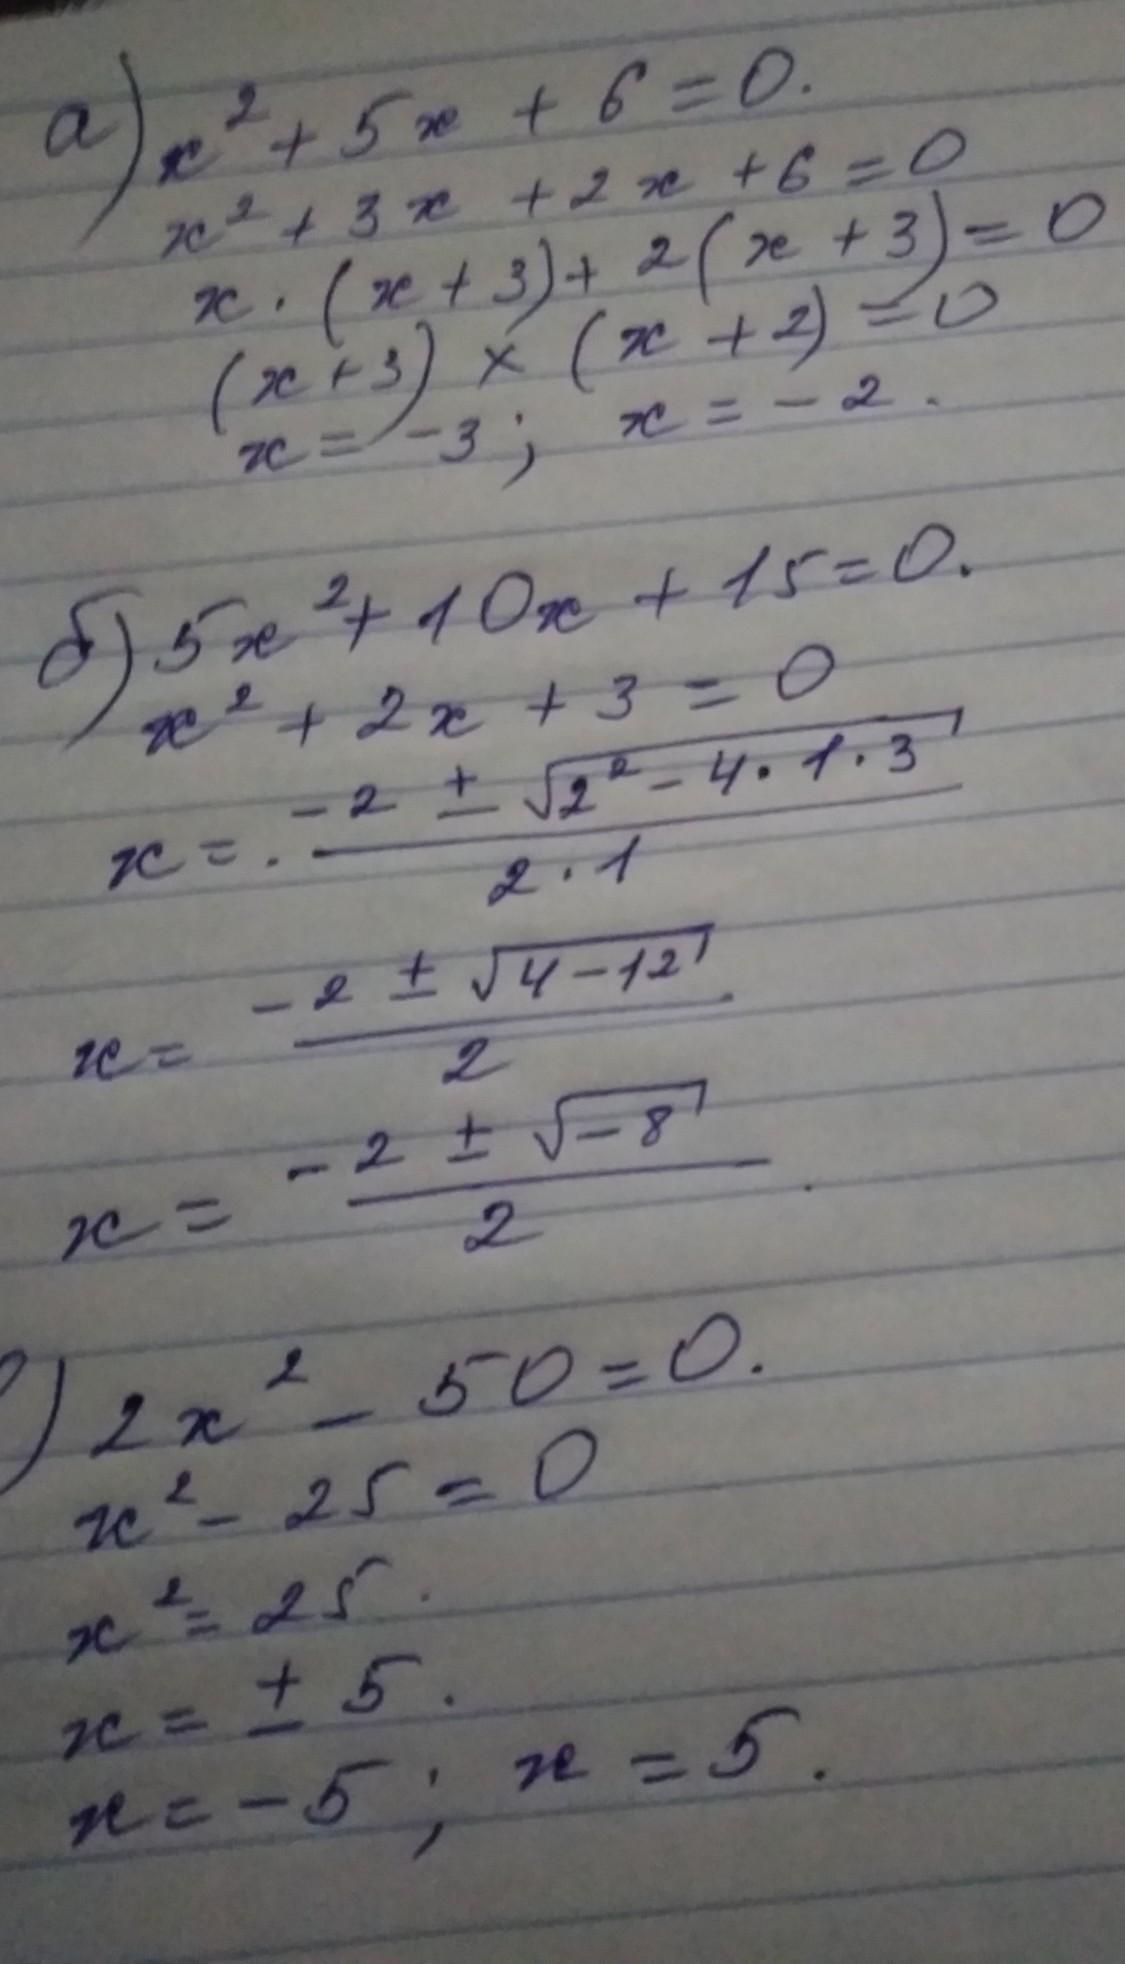 а) x² + 5x + 6 = 0.
x² + 3x + 2x + 6 = 0
x · (x + 3) + 2(x + 3) = 0
(x + 3) × (x + 2) = 0
x = -3; x = -2.
б) 5x² + 10x + 15 = 0.
x² + 2x + 3 = 0
x = . -2 ± √2² - 4 · 1 · 3
2 · 1
x = -2 ± √4 - 12
2
x = -2 ± √-8
2
) 2x² - 50 = 0.
x² - 25 = 0
x² = 25.
x = ± 5.
x = -5; x = 5.